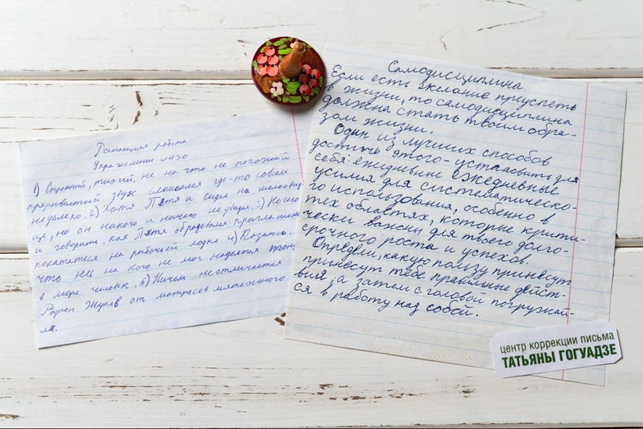 Домашняя работа
Упражнение №30
1) Странный, тихий, ни на что не похожий
прерывистый звук слышался где-то совсем
недалеко. 2) Хотя Петя и сидел на
он никого и ничего не увидел. 3) Нечего
и говорить, как Петя обрадовался приглашению
покататься на рыбачьей лодке. 4) Казалось
что ни на кого не мог надеяться
в мире человек. 5) Ничем не отличается
Родион Жуков от матросов мятежного
ля.
Самодисциплина
Если есть желание преуспеть
в жизни, то самодисциплина
должна стать твоим обра-
зом жизни.
Один из лучших способов
достичь этого - установить для
себя ежедневные ежедневные
усилия для систематическо-
го использования, особенно в
тех областях, которые крити-
чески важны для твоего долго-
срочного роста и успехов.
Определи, какую пользу принесут
принесут тебе правильные дейст-
вия, а затем с головой погружай-
ся в работу над собой.
центр коррекции письма
ТАТЬЯНЫ ГОГУАДЗЕ